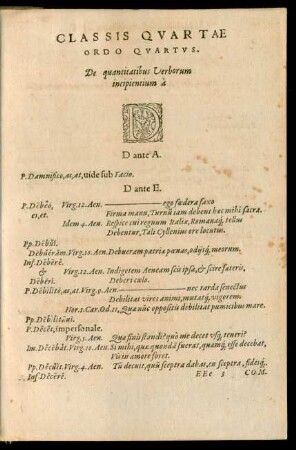 CLASSIS QVARTAE
ORDO QVARTVS.
De quantitatibus Verborum
incipientium à
D
D ante A.
P. Damnifico, as, at, uide sub Facio.
D ante E.
P. Dēbĕo, Virg. 12. Aen. ergo fœdera saxo
es, et. Firma manu, Turnū iam debent hæc mihi sacra.
Idem 4. Aen. Respice cui regnum Italiæ, Romanaq́; tellus
Debentur, Tali Cyllenius ore locutus.
Pp. Dēbŭi.
Dēbŭĕram. Virg. 11. Aen. Debueram patriæ pœnas, odijsq́; meorum,
Inf. Dēbērĕ.
& Virg. 12. Aen. Indigetem Aeneam scis ipsa, & scire fateris,
Dēbēri. Deberi cælo.
P. Dēbĭlĭtĕ, as, at. Virg. 9. Aen. nec tarda senectus
Debilitat vires animi, mutatq́; vigorem.
Hor. 1. Car. Od. 11. Quæ nūc oppositis debilitat pumicibus mare.
Pp. Dēbĭlĭtāui.
P. Dĕcĕt, impersonale.
Virg. 5. Aen. Quo finis standi? quò me decet vsq́; teneri?
Im. Dĕcēbăt. Virg. 11. Aen. Si mihi, quæ quondā fuerat, quamq́; esse decebat,
Vis in amore foret.
Pp. Dĕcŭit. Virg. 4. Aen. Tū decuit, quū sceptra dabas, en sceptra, fidesq́;
Inf. Dĕcērĕ. EEe 3 COM.